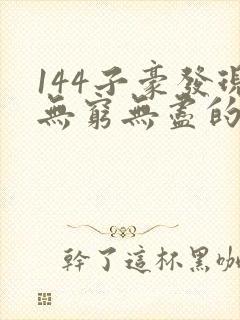 144子豪發現
無窮無盡的
幹了這杯黑咖